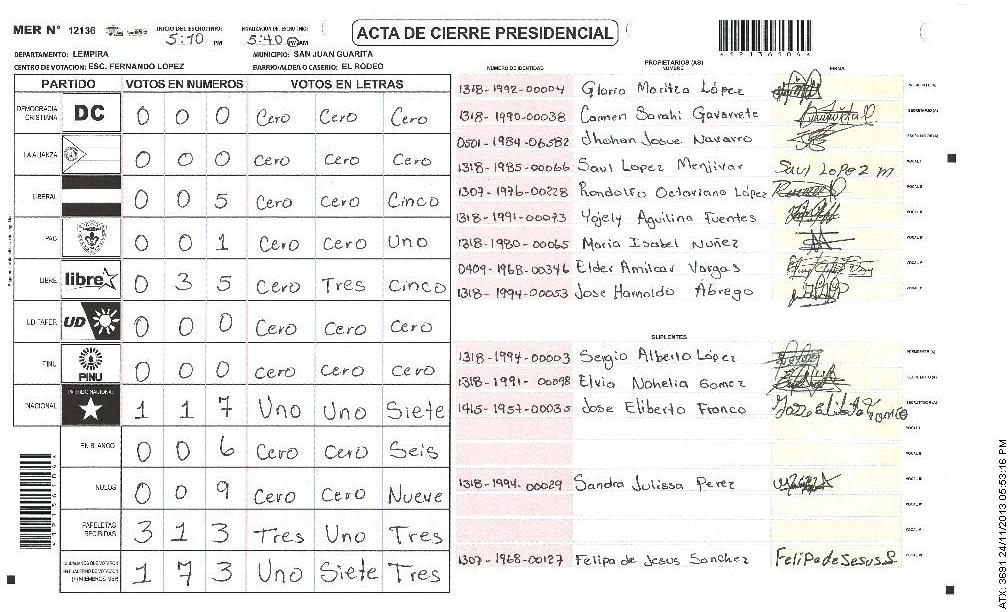 MER N° 12136 INICIO DEL ESCRUTINIO: 5:10 PM FINALIZACION DE ESCRUTINIO: 5:40 PM AM ACTA DE CIERRE PRESIDENCIAL
DEPARTAMENTO: LEMPIRA MUNICIPIO: SAN JUAN GUARITA
CENTRO DE VOTACION: ESC. FERNANDO LOPEZ BARRIO/ALDEA O CASERIO: EL RODEO
PARTIDO VOTOS EN NUMEROS VOTOS EN LETRAS
DEMOCRACIA CRISTIANA DC 0 0 0 Cero Cero Cero
LA ALIANZA 0 0 0 Cero Cero Cero
LIBERAL 0 0 5 Cero Cero Cinco
PAC 0 0 1 Cero Cero Uno
LIBRE libre 0 3 5 Cero Tres Cinco
UD-FAPER UD 0 0 0 Cero Cero Cero
PINU PINU 0 0 0 Cero Cero Cero
NACIONAL PARTIDO NACIONAL 1 1 7 Uno Uno Siete
EN BLANCO 0 0 6 Cero Cero Seis
NULOS 0 0 9 Cero Cero Nueve
PAPELETAS RECIBIDAS 3 1 3 Tres Uno Tres
CIUDADANOS QUE VOTARON EN CUADERNO DE VOTACION (+) MIEMBROS MER 1 7 3 Uno Siete Tres
PROPIETARIOS (AS)
NUMERO DE IDENTIDAD NOMBRE FIRMA
1318-1992-00004 Gloria Maritza López
1318-1990-00038 Carmen Sarahi Gavarrete
0501-1984-06582 Jhohan Josue Navarro
1318-1985-00066 Saul Lopez Menjivar Saul Lopez m
1307-1976-00228 Rondolfo Octaviano López
1318-1991-00073 Yojely Aguilina Fuentes
1318-1980-00065 Maria Isabel Nuñez
0409-1968-00346 Elder Amilcar Vargas
1318-1994-00053 Jose Harnoldo Abrego
SUPLENTES
1318-1994-00003 Sergio Alberto López
1318-1991-00098 Elvio Nohelia Gomez
1415-1957-00035 Jose Eliberto Franco
1318-1994-00029 Sandra Julissa Perez
1307-1968-00127 Felipa de Jesus Sanchez Felipa de Jesus S.
ATX: 3691 24/11/2013 05:53:16 PM